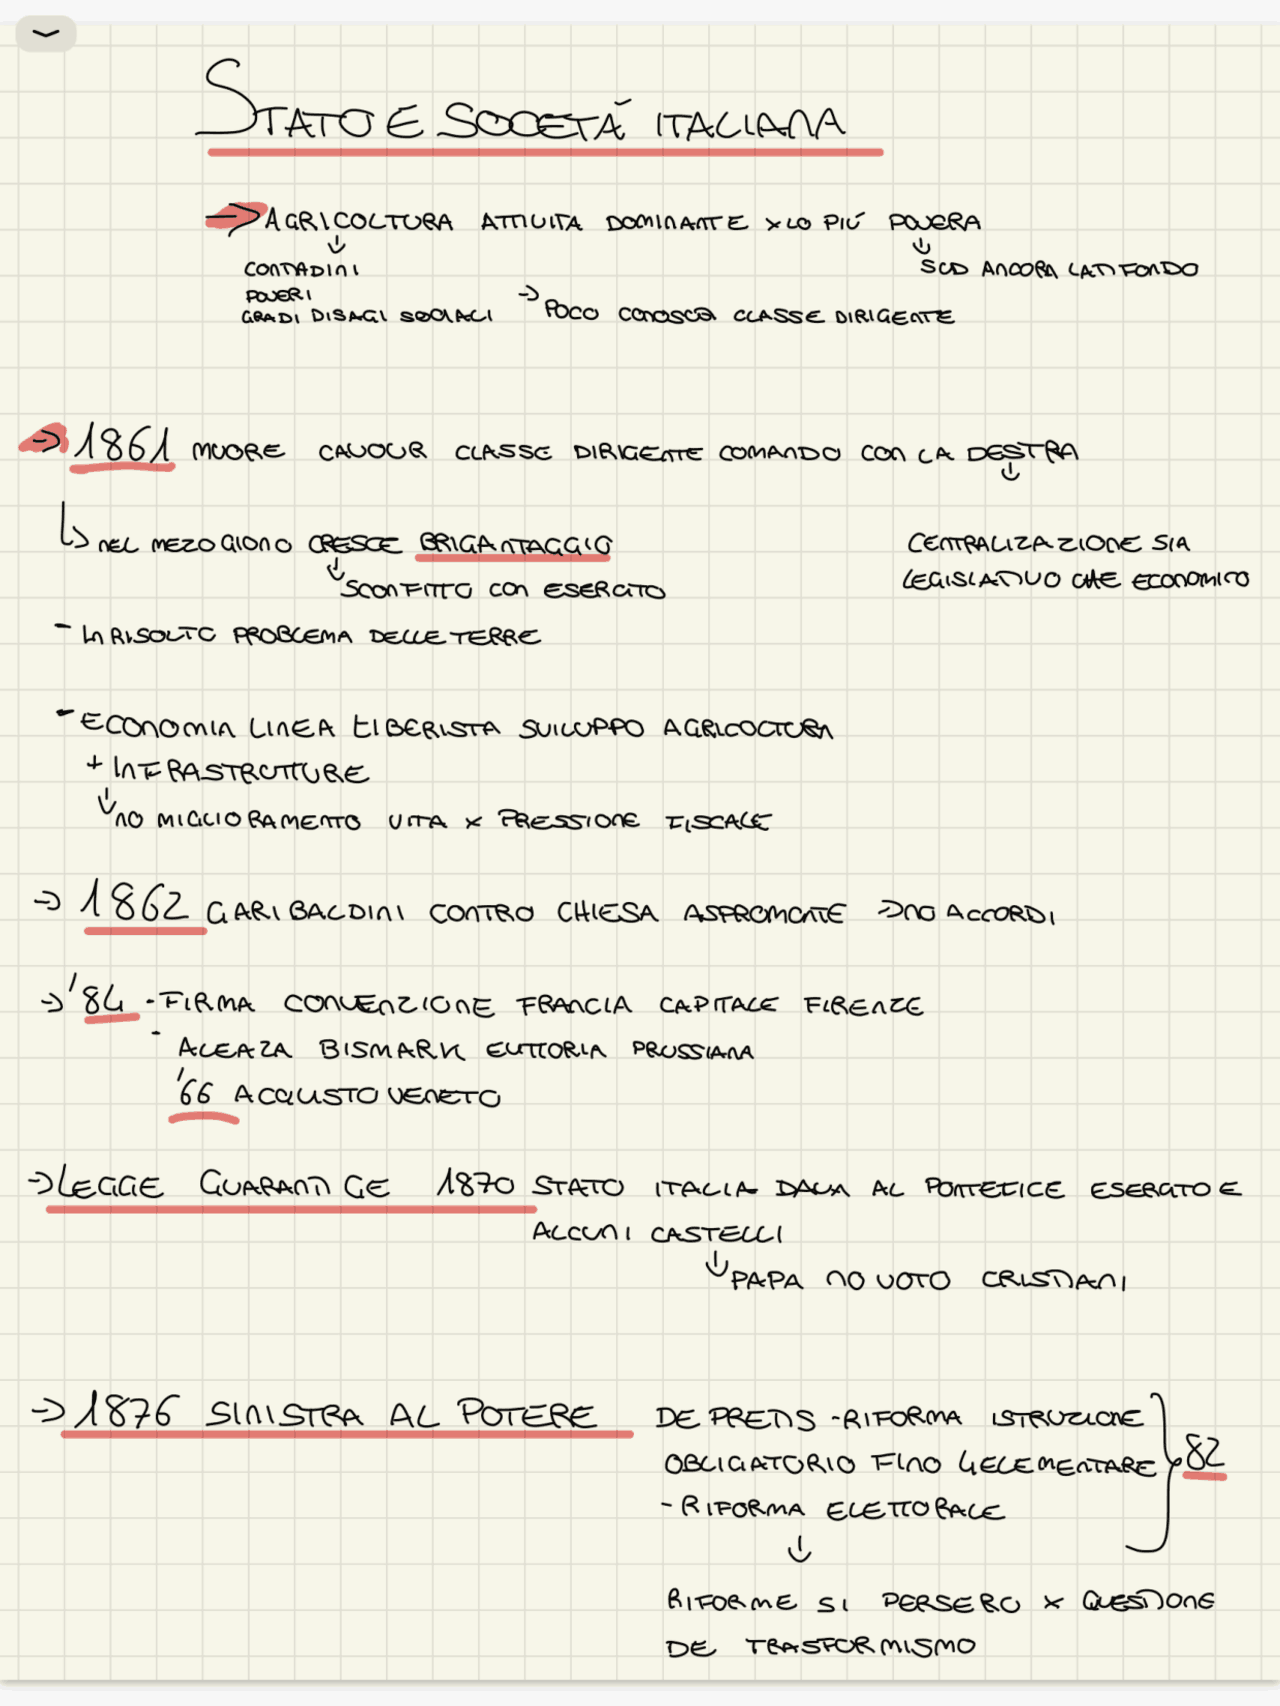 STATO E SOCETÀ ITALIANA
→ AGRICOLTURA ATTIVITA DOMINANTE x LO PIÚ POVERA
↓ ↓
CONTADINI SUD ANCORA LATIFONDO
POVERI
GRADI DISAGI SOCIALI → POCO CONOSCIA CLASSE DIRIGENTE
→ 1861 MUORE CAVOUR CLASSE DIRIGENTE COMANDO CON LA DESTRA
↓
↳ NEL MEZOGIONO CRESCE BRIGANTAGGIO CENTRALIZAZIONE SIA
↓ SCONFITTO CON ESERCITO LEGISLATIVO CHE ECONOMICO
- INRISOLTO PROBLEMA DELLE TERRE
- ECONOMIA LINEA LIBERISTA SVILUPPO AGRICOLTURA
+ INFRASTRUTTURE
↓ NO MIGLIORAMENTO VITA x PRESSIONE FISCALE
→ 1862 GARIBALDINI CONTRO CHIESA ASPROMONTE → NO ACCORDI
→ '84 - FIRMA CONVENZIONE FRANCIA CAPITALE FIRENZE
- ALEAZA BISMARK E VITTORIA PRUSSIANA
'66 ACQUISTO VENETO
→ LEGGE GUARANTIGE 1870 STATO ITALIA DAVA AL PONTEFICE ESERCITO E
ALCUNI CASTELLI
↓ PAPA NO VOTO CRISTIANI
→ 1876 SINISTRA AL POTERE DE PRETIS - RIFORMA ISTRUZIONE
OBLIGATORIO FINO 4 ELEMENTARE } 82
- RIFORMA ELETTORALE
↓
RIFORME SI PERSERO x QUESTIONE
DE TRASFORMISMO